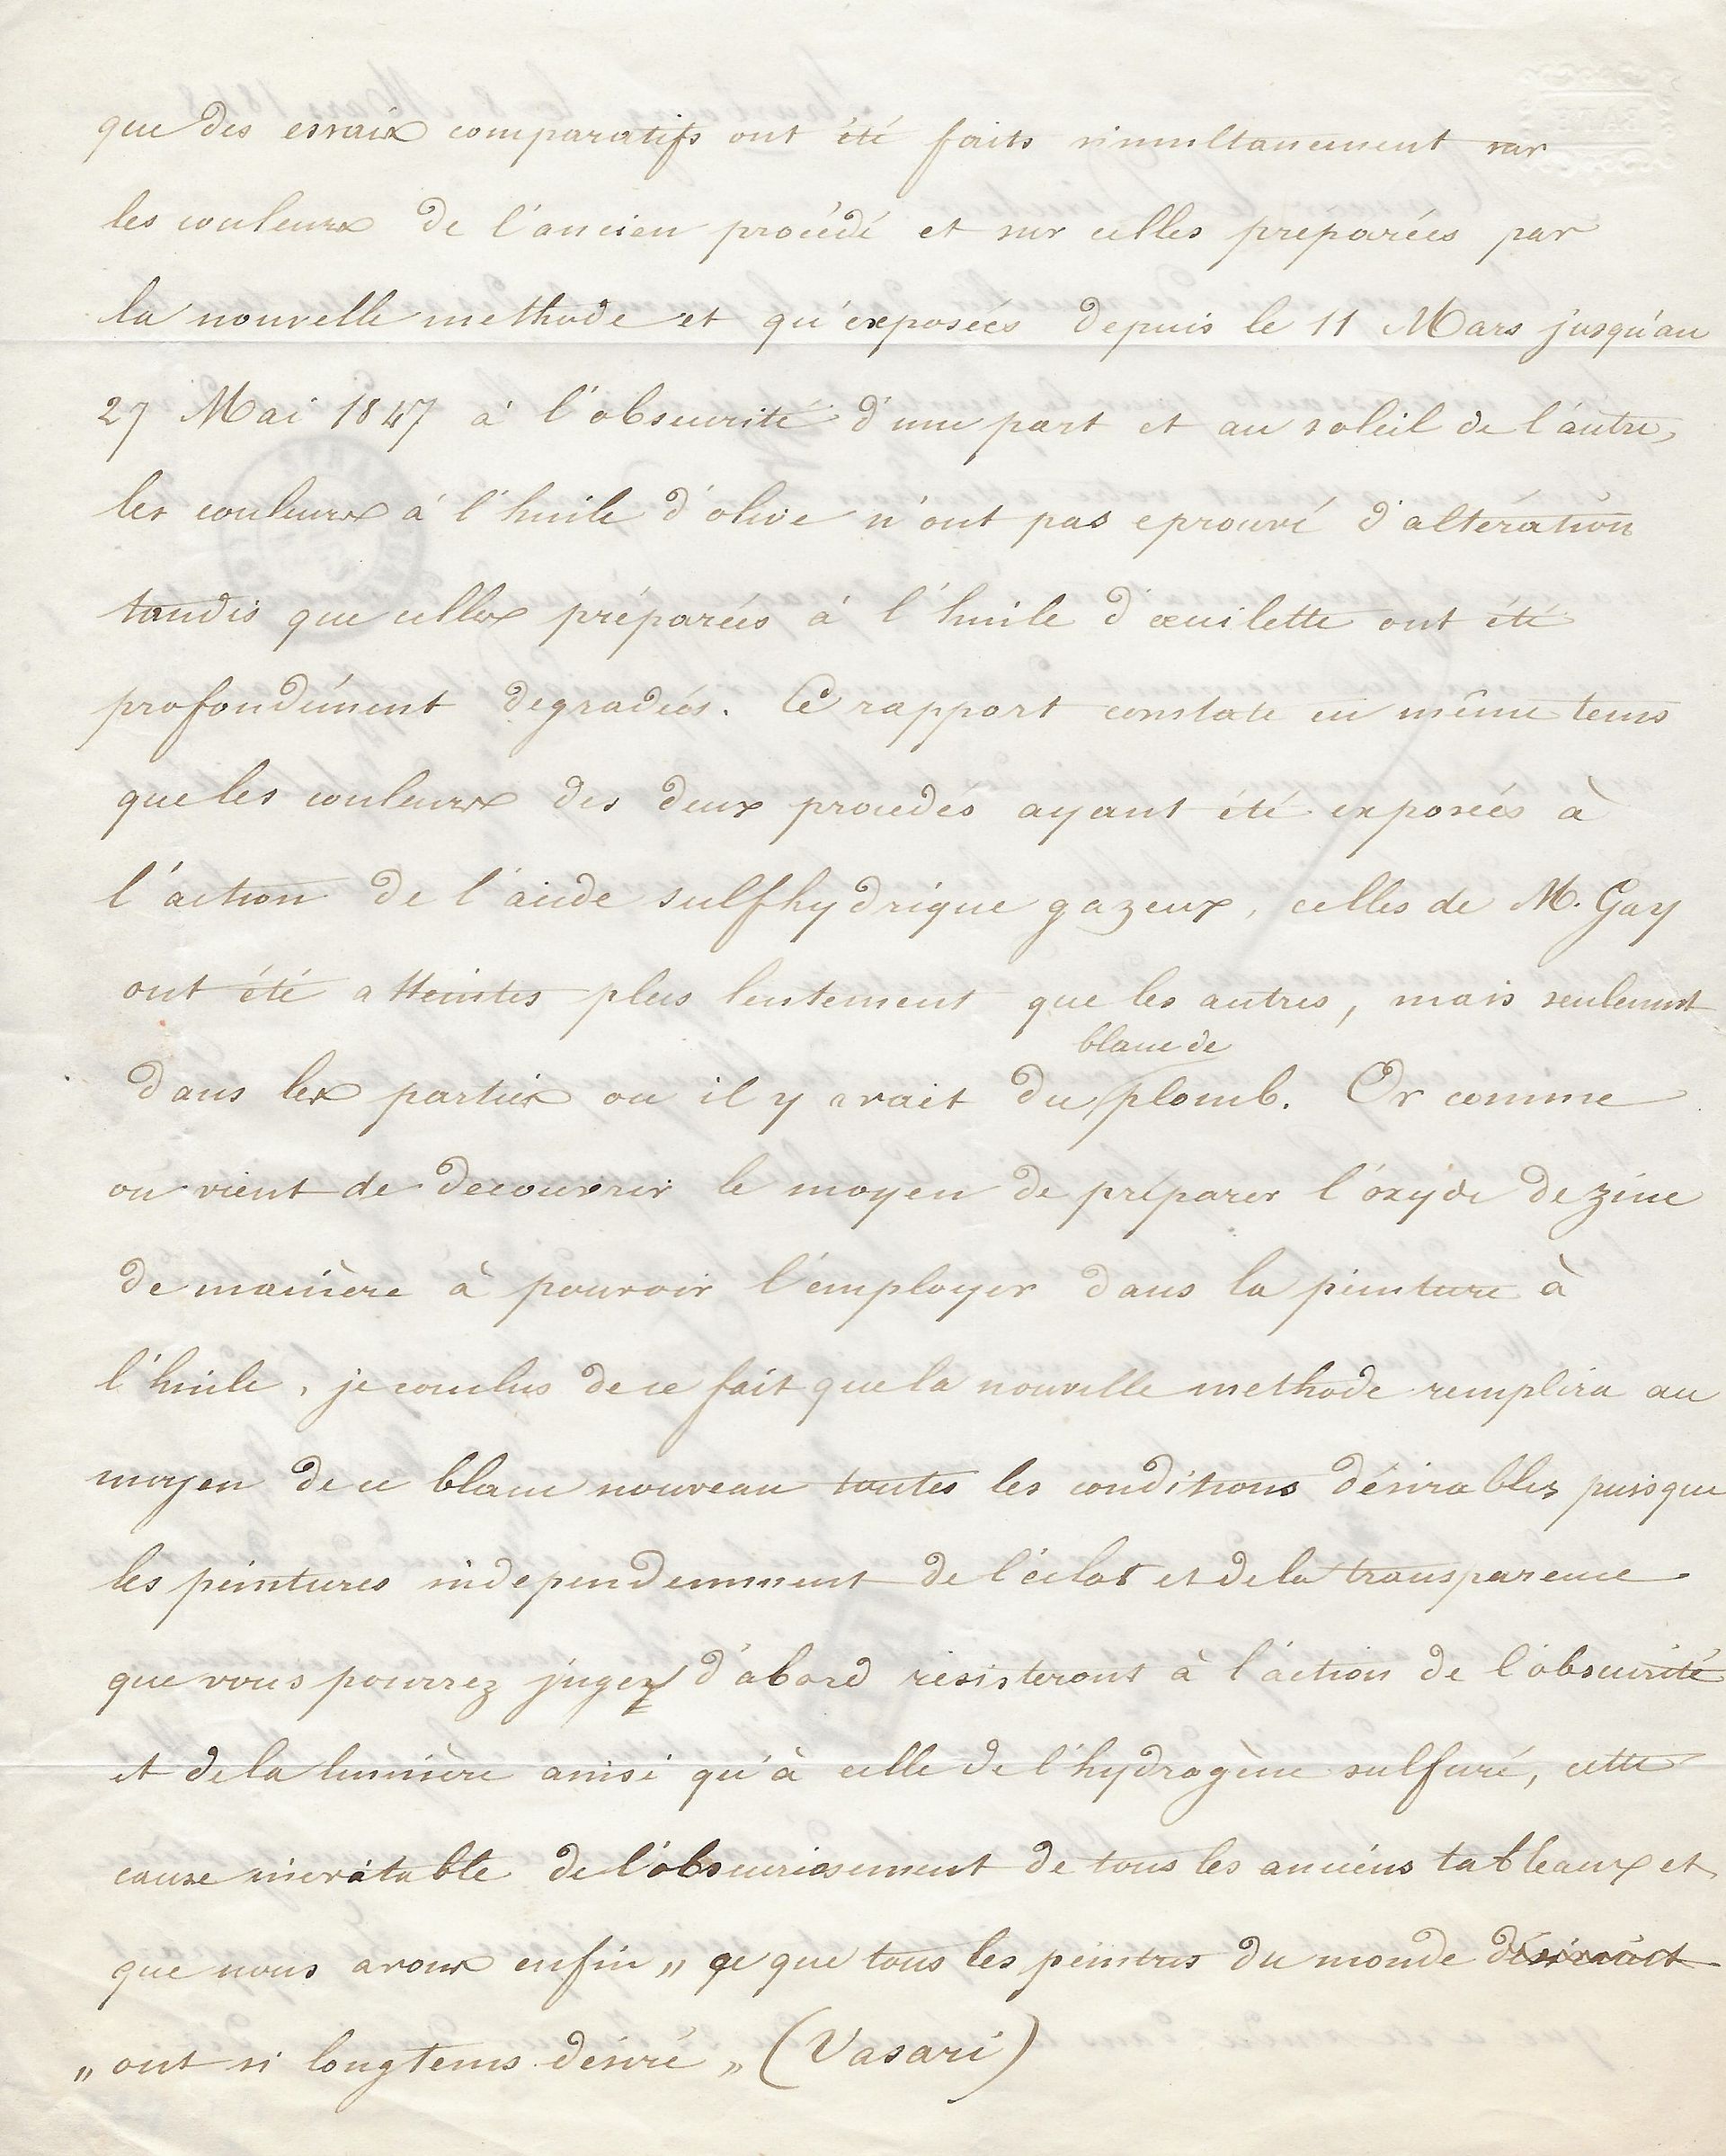 que des essaix comparatifs ont été faits simultanement sur
les couleurs de l'ancien procédé et sur celles préparées par
la nouvelle methode et qu'exposées depuis le 11 Mars jusqu'au
27 Mai 1847 à l'obscurité d'une part et au soleil de l'autre,
les couleurs à l'huile d'olive n'ont pas eprouvé d'altération
tandis que celles préparées à l'huile d'œuilette ont été
profondément degradées. Ce rapport constate en même tems
que les couleurs des deux procedés ayant été exposées à
l'action de l'acide sulfhydrique gazeux, celles de M. Gay
ont été atteintes plus lentement que les autres, mais seulement
blanc de
dans les parties ou il y avait du plomb. Or comme
on vient de decouvrir le moyen de préparer l'oxyde de zinc
de manière à pouvoir l'employer dans la peinture à
l'huile, je conclus de ce fait que la nouvelle methode remplira au
moyen de ce blanc nouveau toutes les conditions désirables puisque
les peintures independemment de l'éclat et de la transparence
que vous pourrez jugez d'abord résisteront à l'action de l'obscurité
et de la lumière ainsi qu'à celle de l'hydrogène sulfuré, cette
cause inevitable de l'obscurcissement de tous les anciens tableaux et
que nous avons enfin „ ce que tous les peintres du monde desiraient
„ ont si longtems désiré „ (Vasari)